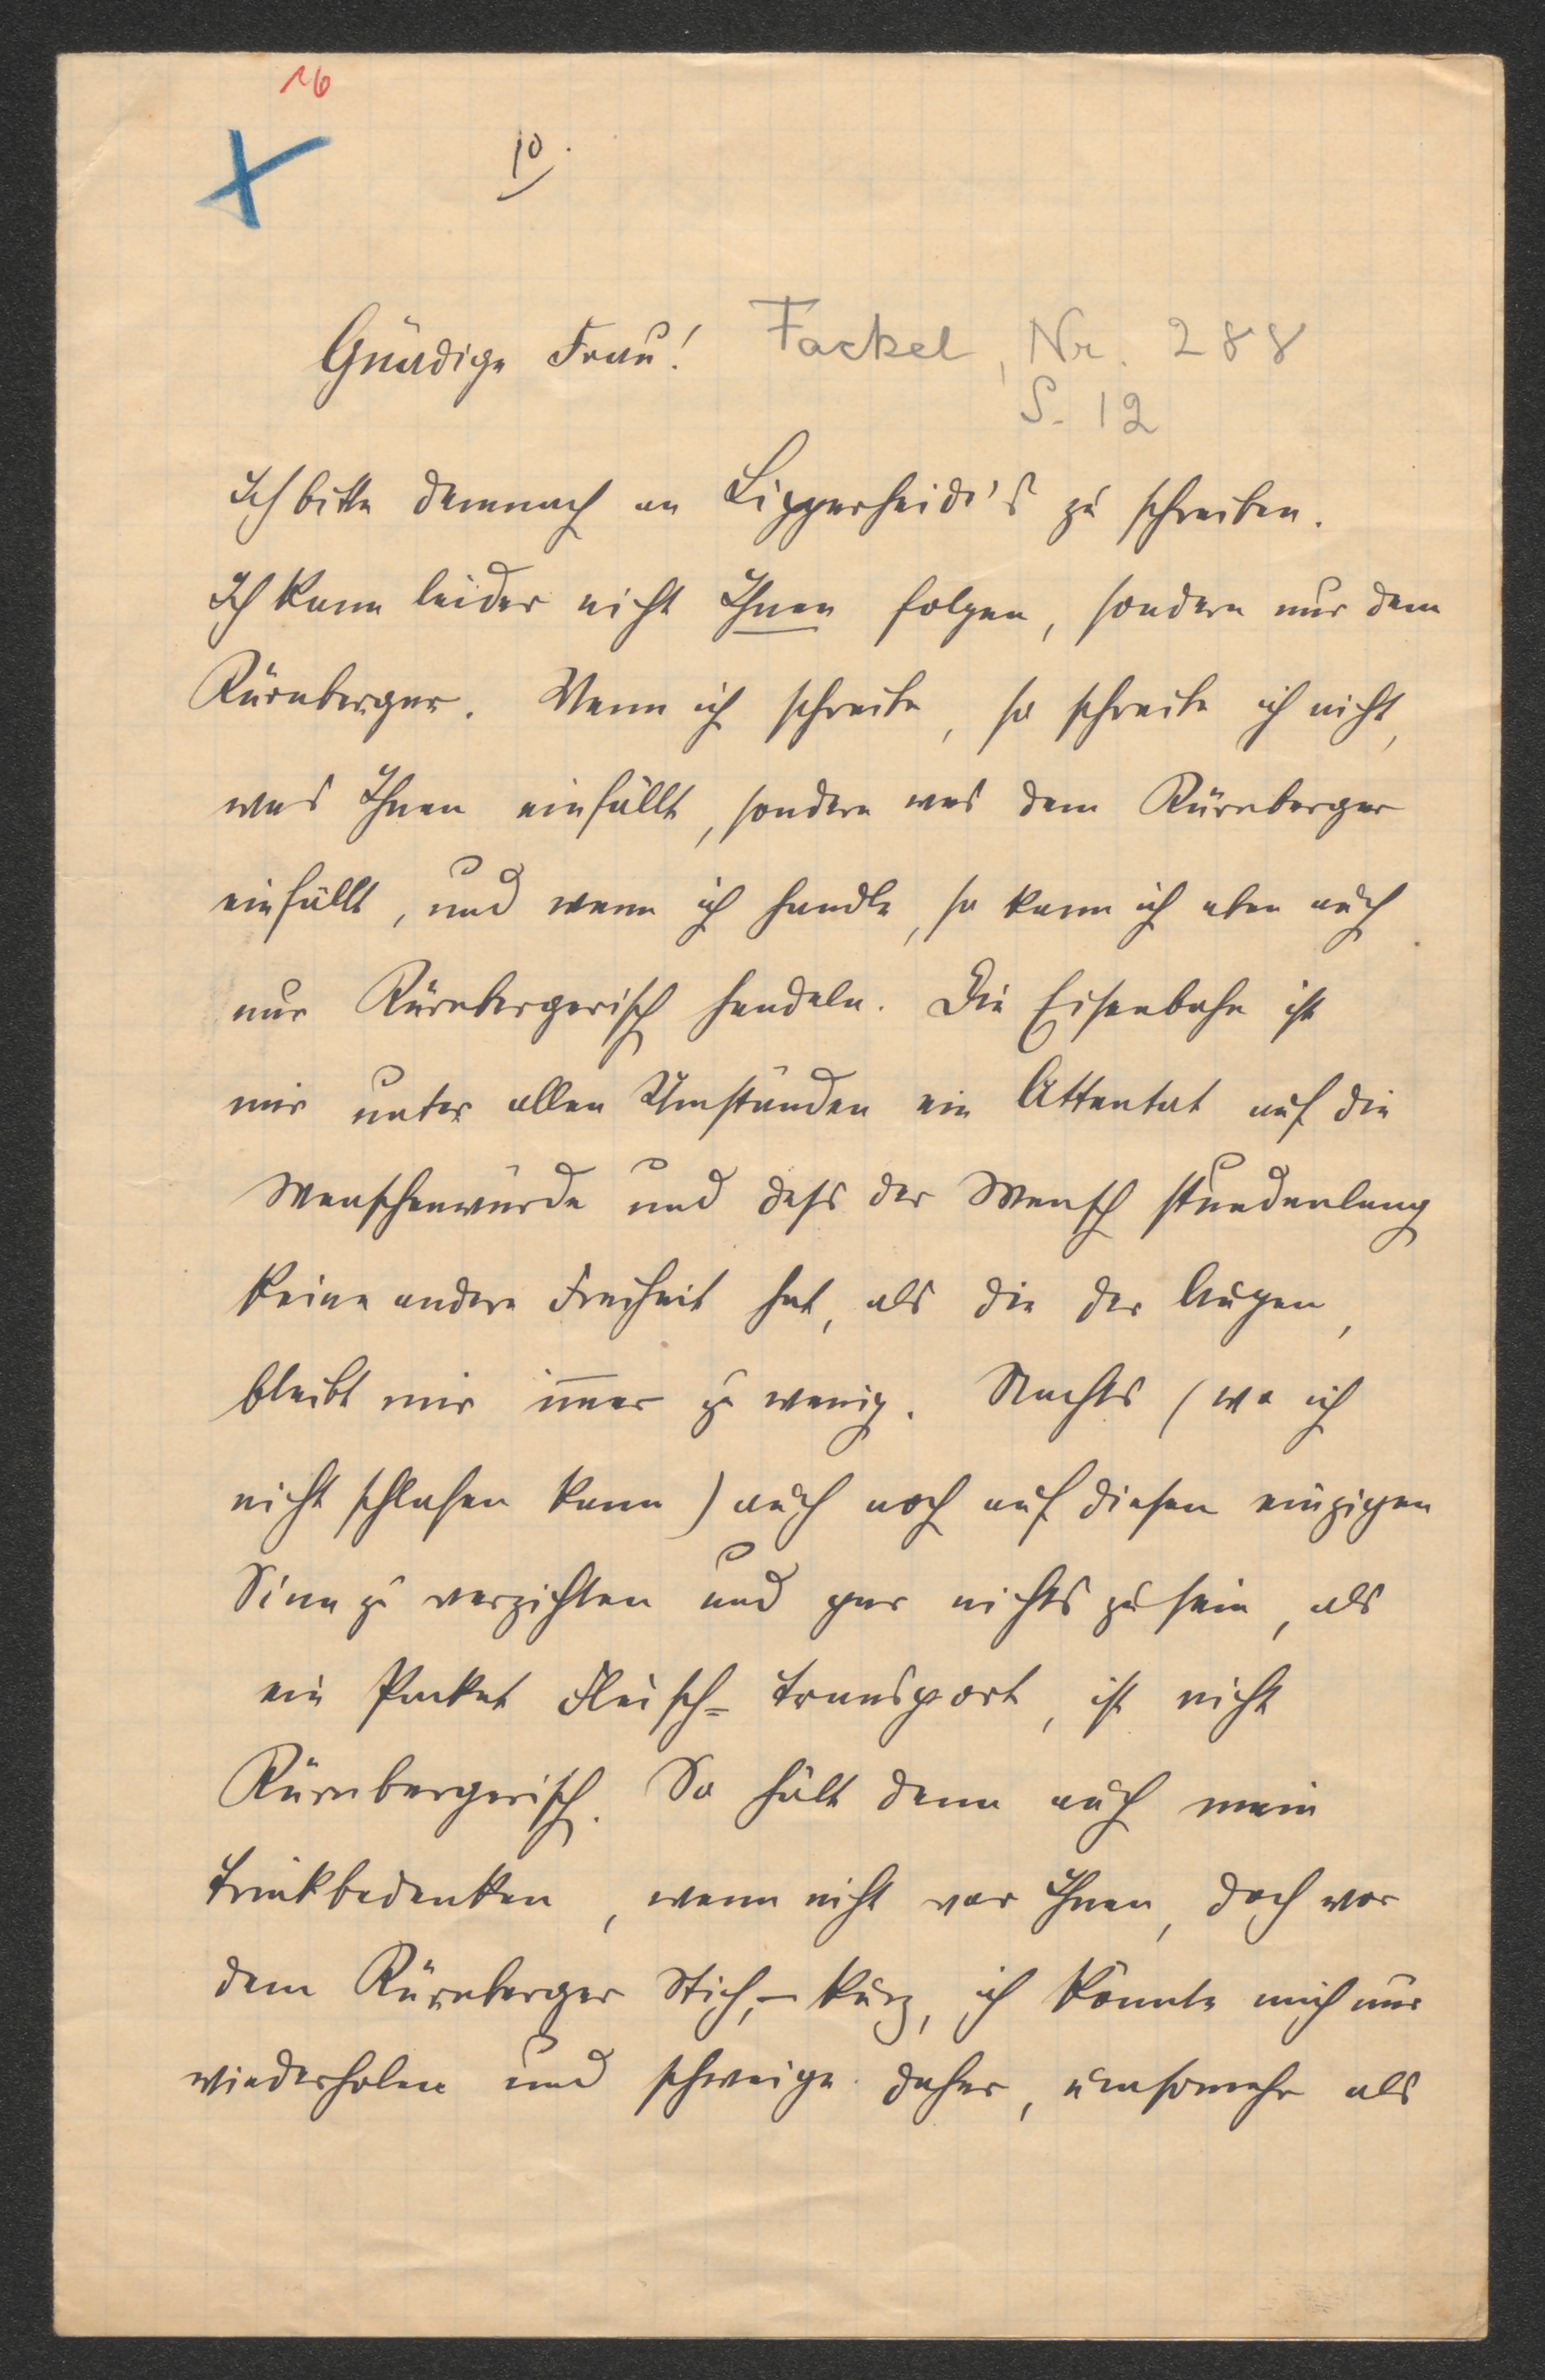 16
10.
Gnädige Frau! Fackel, Nr. 288
S. 12
Ich bitte demnach an Lipperheide's zu schreiben.
Ich kann leider nicht Ihnen folgen, sondern nur dem
Kürnberger. Wenn ich schreibe, so schreibe ich nicht,
was Ihnen einfällt, sondern was dem Kürnberger
einfällt, und wenn ich handle, so kann ich eben auch
nur Kürnbergerisch handeln. Die Eisenbahn ist
mir unter allen Umständen ein Attentat auf die
Menschenwürde und dass der Mensch stundenlang
keine andere Freiheit hat, als die der Augen,
bleibt mir im̄er zu wenig. Nachts (wo ich
nicht schlafen kann) auch noch auf diesen einzigen
Sinn zu verzichten und gar nichts zu sein, als
ein Packet Fleisch-transport, ist nicht
Kürnbergerisch. So hält denn auch mein
Trinkbedenken, wenn nicht vor Ihnen, doch vor
dem Kürnberger Stich, – kurz, ich könnte mich nur
wiederholen und schweige daher, umsomehr als